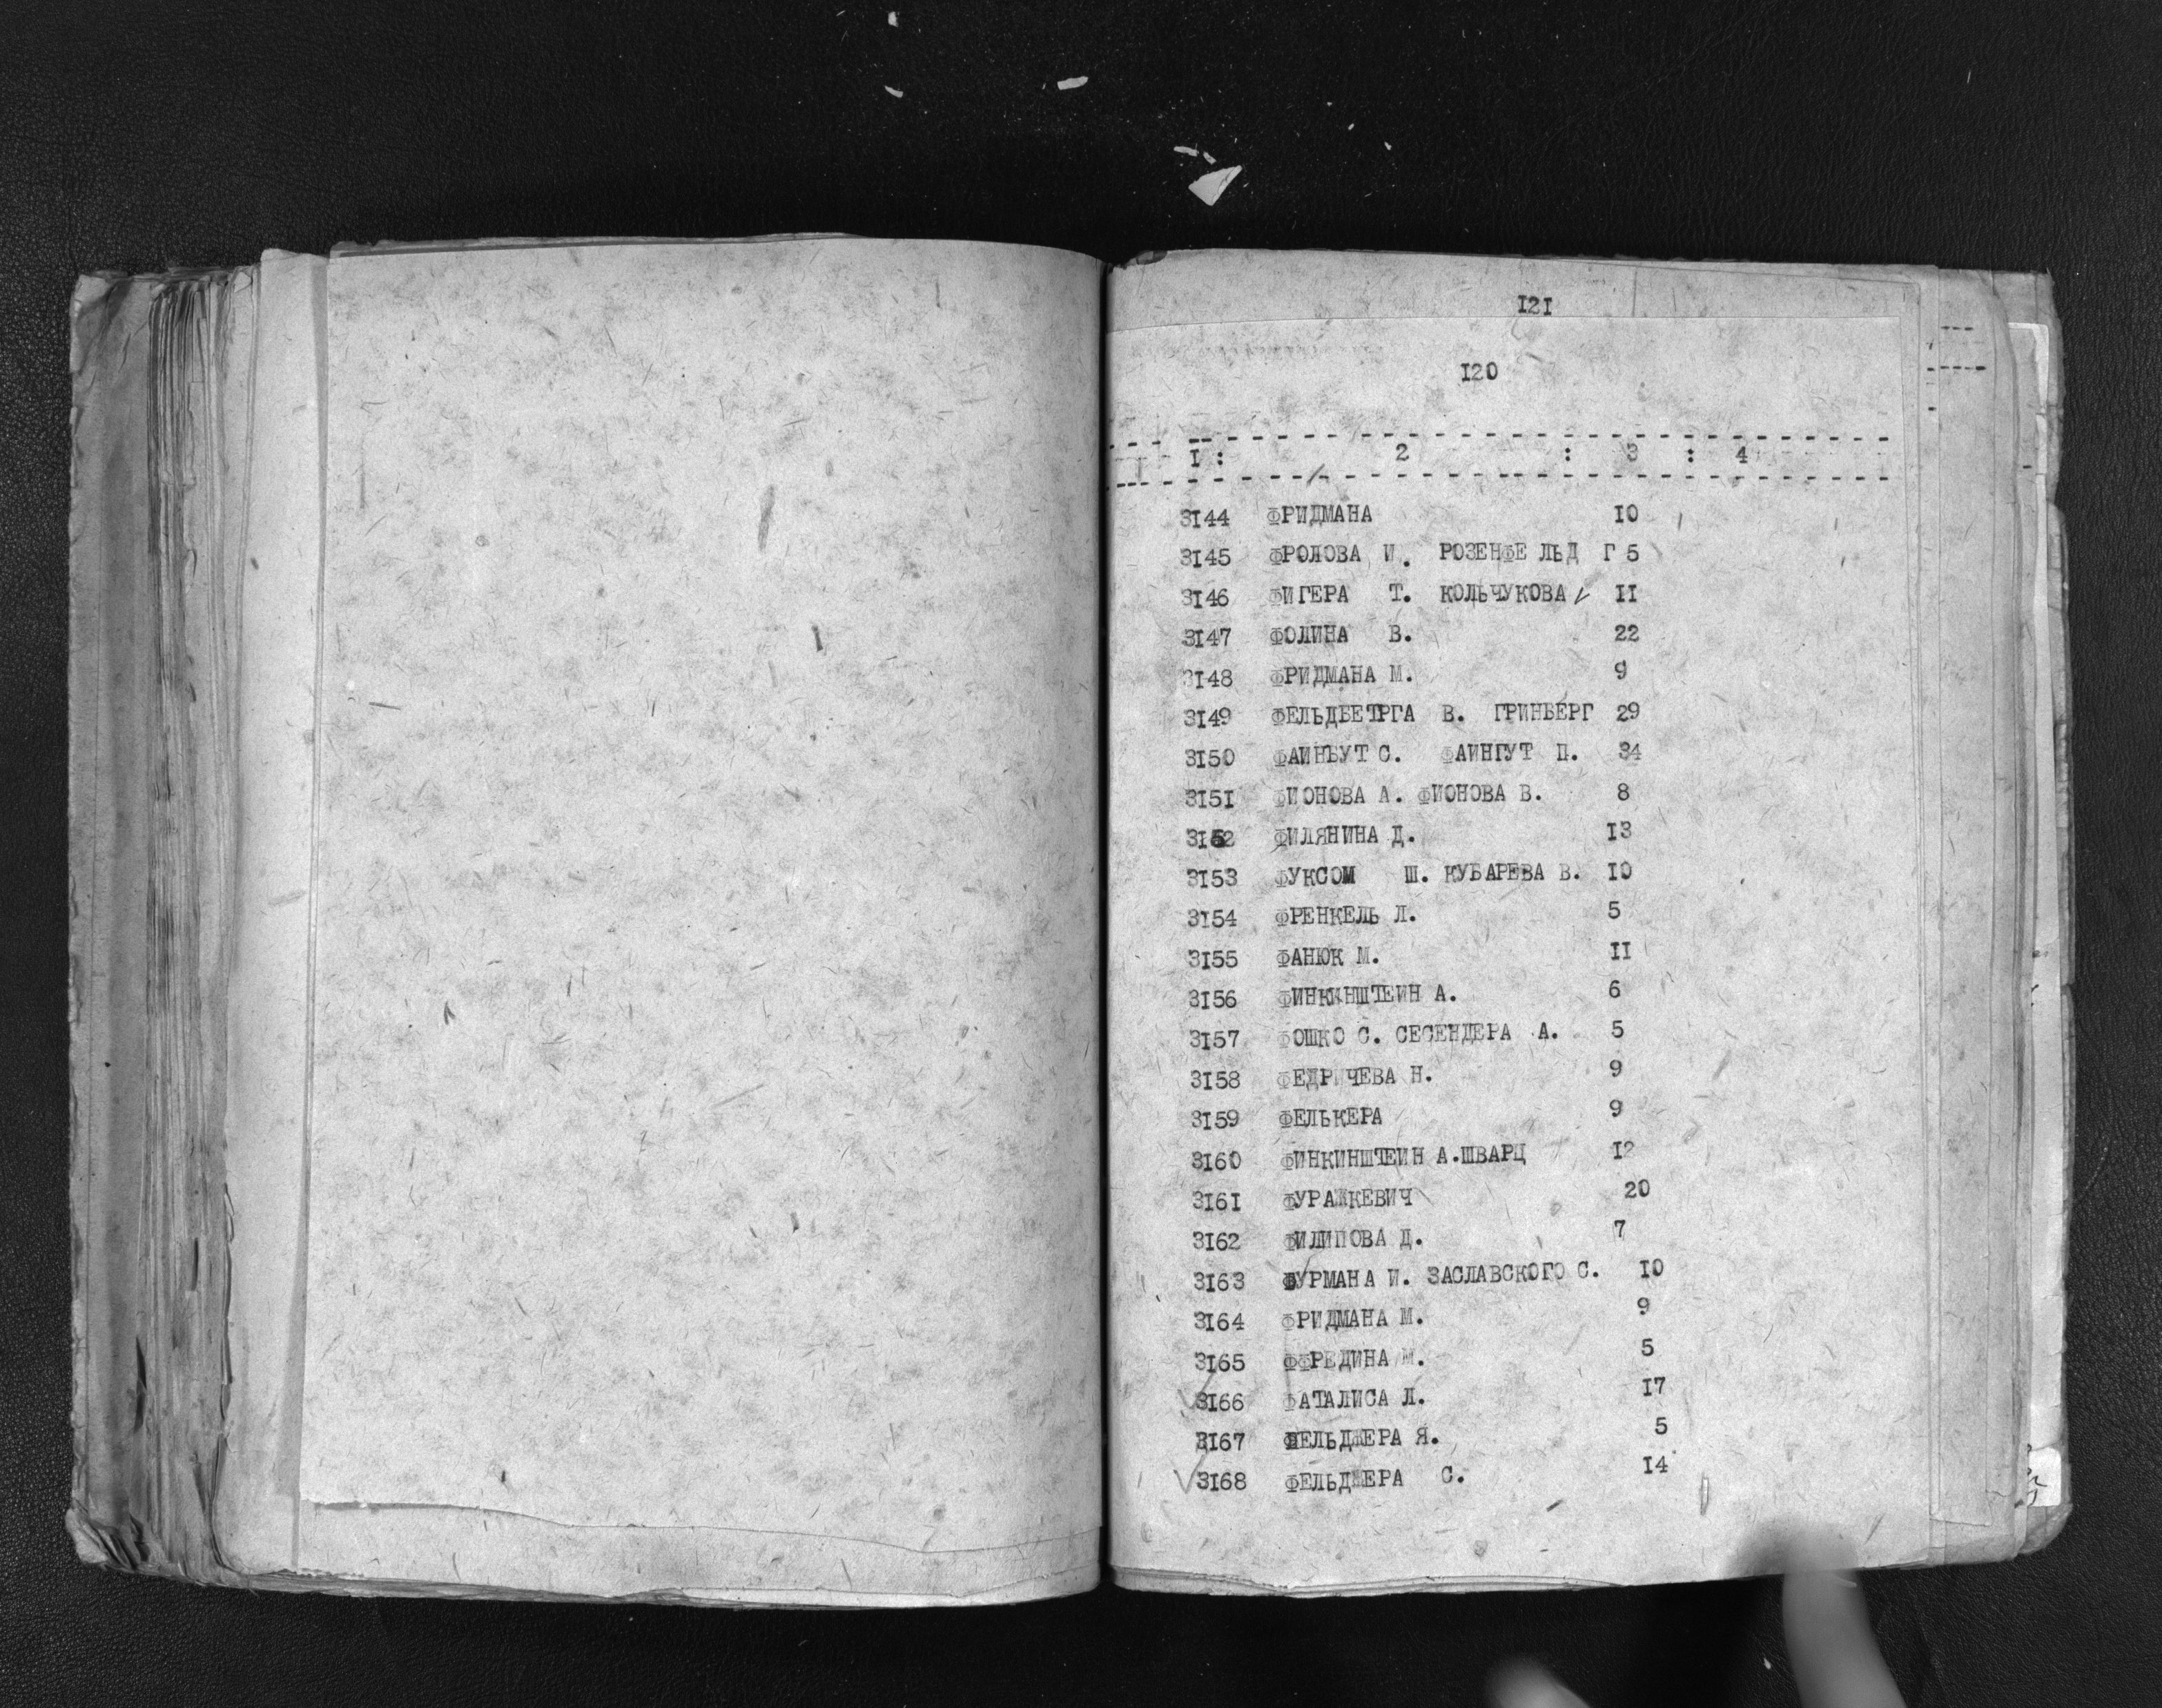 121
120
1 : 2 : 3 : 4
3144 ФРИДМАНА 10
3145 ФРОЛОВА И. РОЗЕНФЕ ЛЬД Г 5
3146 ФИГЕРА Т. КОЛЬЧУКОВА 11
3147 ФОЛИНА В. 22
3148 ФРИДМАНА М. 9
3149 ФЕЛЬДБЕТРГА В. ГРИНБЕРГ 29
3150 ФАИНБУТ С. ФАИНГУТ П. 34
3151 ФИОНОВА А. ФИОНОВА В. 8
3152 ФИЛЯНИНА Д. 13
3153 ФУКСОМ Ш. КУБАРЕВА В. 10
3154 ФРЕНКЕЛЬ Л. 5
3155 ФАНЮК М. 11
3156 ФИНКИНШТЕИН А. 6
3157 ФОШКО С. СЕСЕНДЕРА А. 5
3158 ФЕДРИЧЕВА Н. 9
3159 ФЕЛЬКЕРА 9
3160 ФИНКИНШТЕИН А.ШВАРЦ 12
3161 ФУРАЖКЕВИЧ 20
3162 ФИЛИПОВА Д. 7
3163 ФУРМАНА И. ЗАСЛАВСКОГО С. 10
3164 ФРИДМАНА М. 9
3165 ФФРЕДИНА М. 5
3166 ФАТАЛИСА Л. 17
3167 ФЕЛЬДЖЕРА Я. 5
3168 ФЕЛЬДЖЕРА С. 14